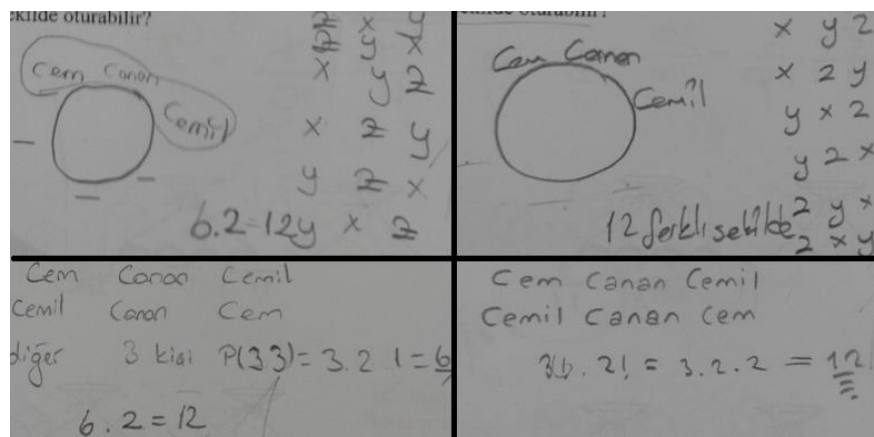 ekilde oturabilir?
Cem Canan
Cemil
z x y
z y x
x y z
x z y
y z x
6.2=12 y x z
Cem Canan
Cemil
x y 2
x 2 y
y x 2
y 2 x
12 farklı şekilde 2 y x
2 x y
Cem Canan Cemil
Cemil Canan Cem
diğer 3 kişi P(33)= 3.2 1=6
6.2=12
Cem Canan Cemil
Cemil Canan Cem
3!. 2! = 3.2.2 = 12